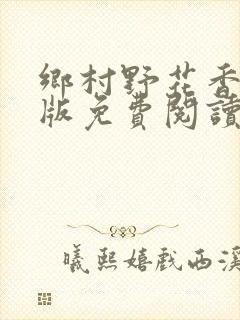 鄉村野花香
版免費閱讀
曦熙嬉戲西溪